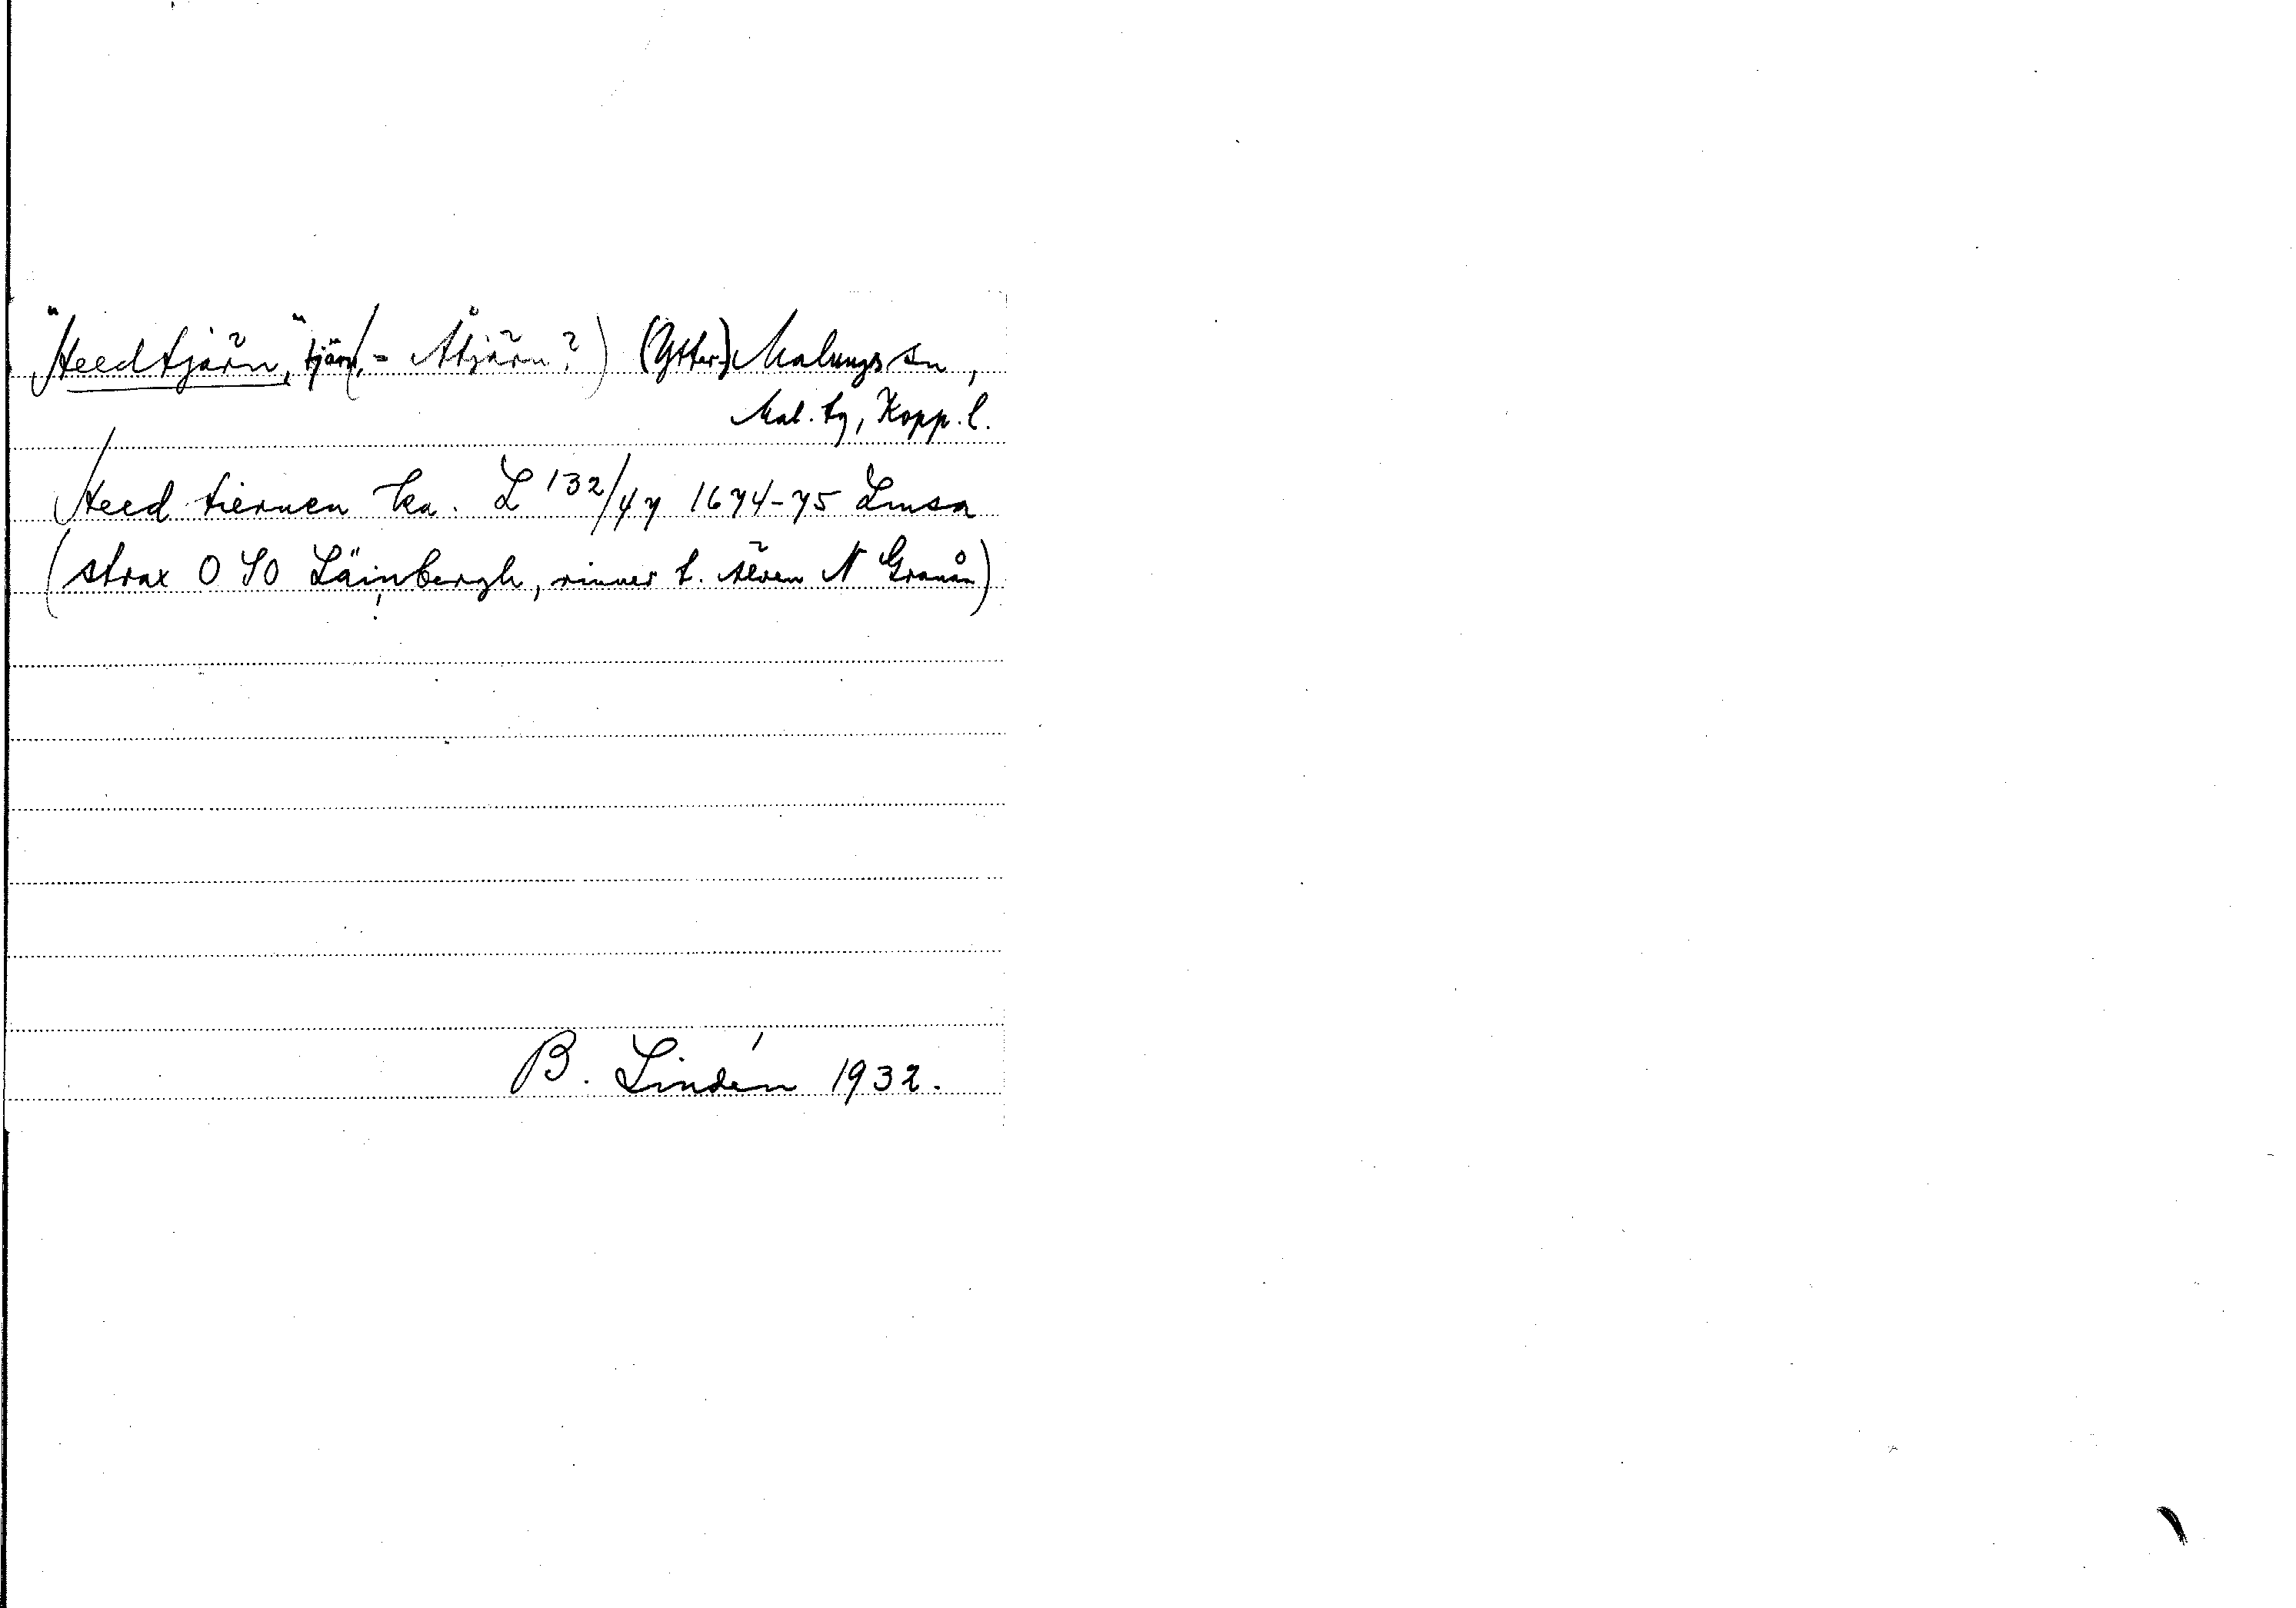 "Heedtjärn," tjärn (= Åtjärn?) (Ytter) Malungs sn,
Mal. tg, Kopp. l.
Heed tiernen ka. L 132/47 1674-75 Lmsa
(strax O SO Läinbergh, rinner t. älven N Granån)
B. Lindén 1932.